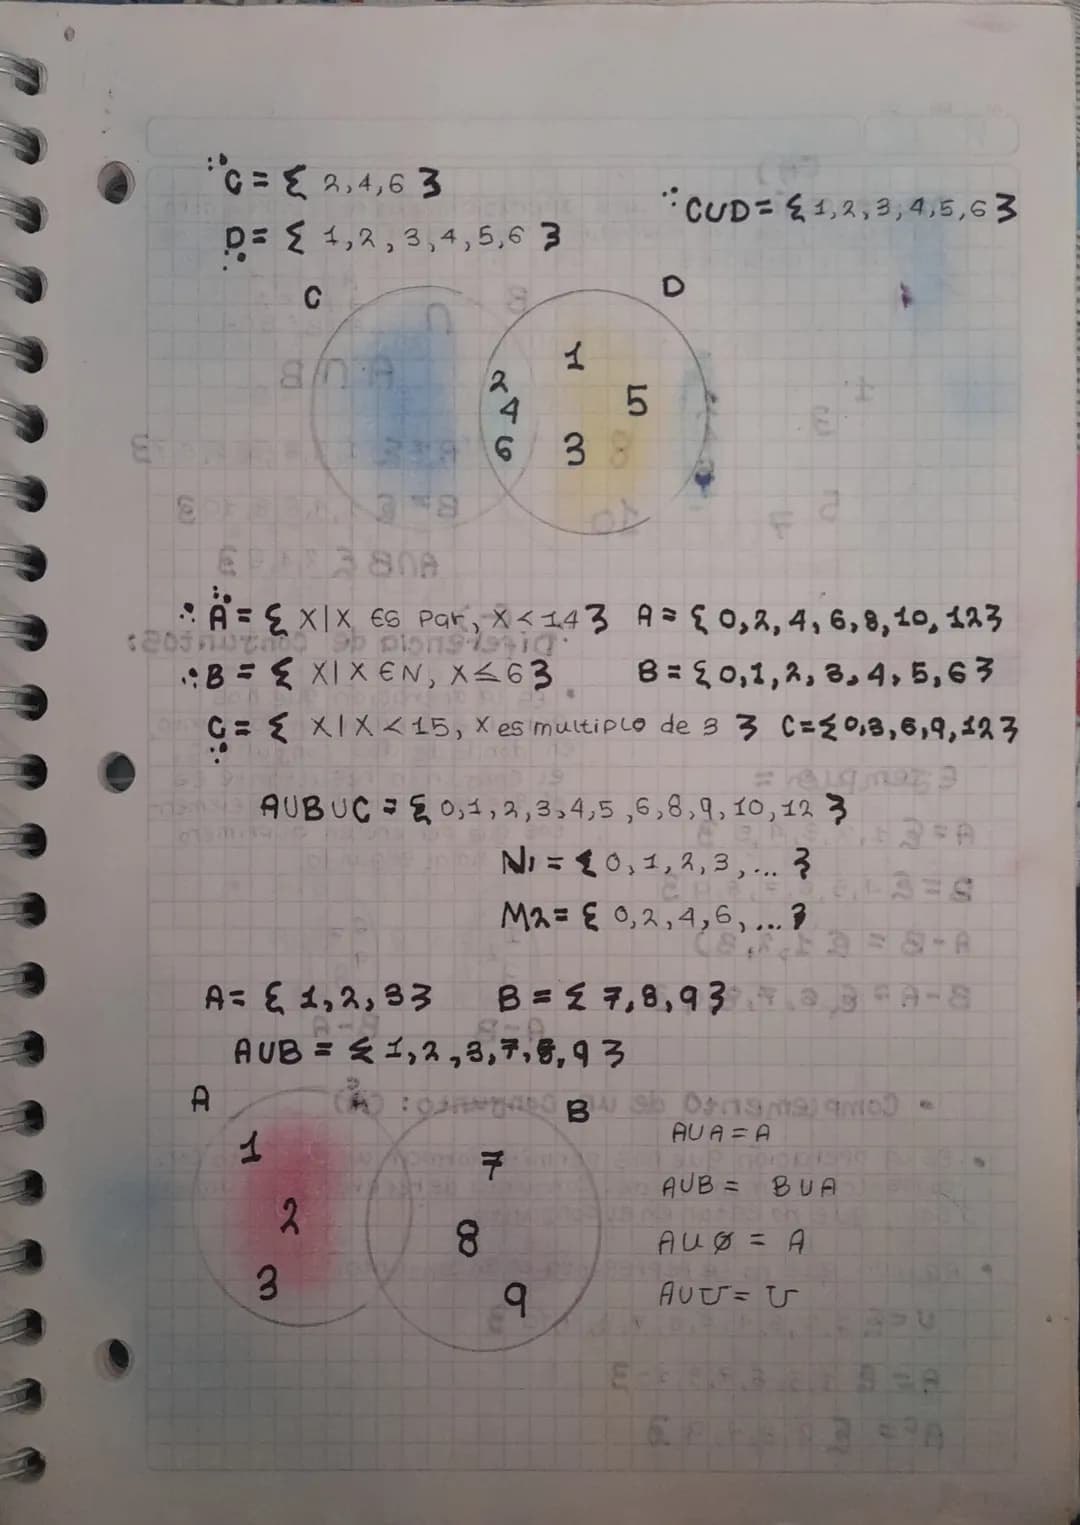 ∴ C = { 2,4,6 }
D = { 1,2,3,4,5,6 }
∴ CUD = { 1,2,3,4,5,6 }
C D
1
2
4 5
6 3
∴ A = { X|X ES Par, X < 14 } A = { 0,2,4,6,8,10,12 }
∴ B = { X|X ∈ N, X ≤ 6 } B = { 0,1,2,3,4,5,6 }
C = { X|X < 15, X es multiplo de 3 } C = { 0,3,6,9,12 }
AUBUC = { 0,1,2,3,4,5,6,8,9,10,12 }
N1 = { 0,1,2,3,... }
M2 = { 0,2,4,6,... }
A = { 1,2,3 } B = { 7,8,9 }
AUB = { 1,2,3,7,8,9 }
A B
1 7
2 8
3 9
AUA = A
AUB = BUA
AUØ = A
AUU = U